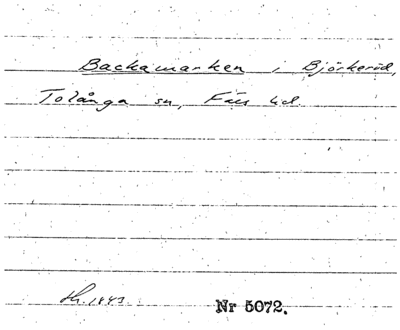 Backamarken i Björkeröd,
Tolånga sn, Färs hd.
Nr 5072.